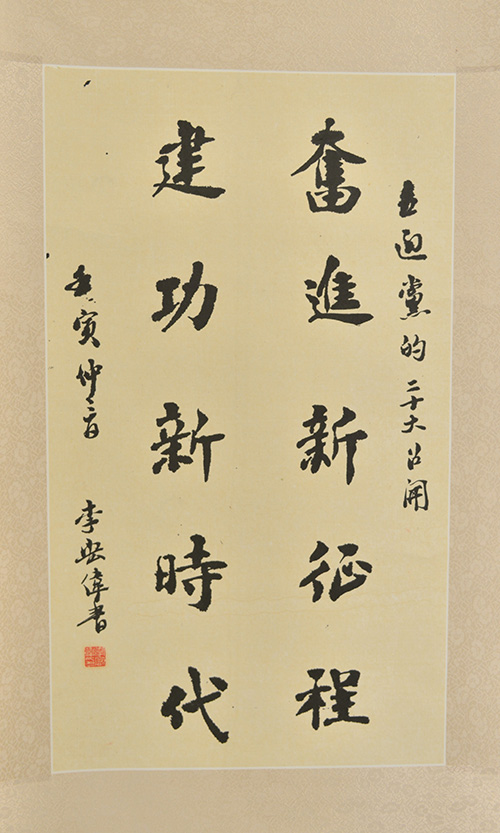 喜迎黨的二十大召開
奮進新征程
建功新時代
壬寅仲 李興偉書